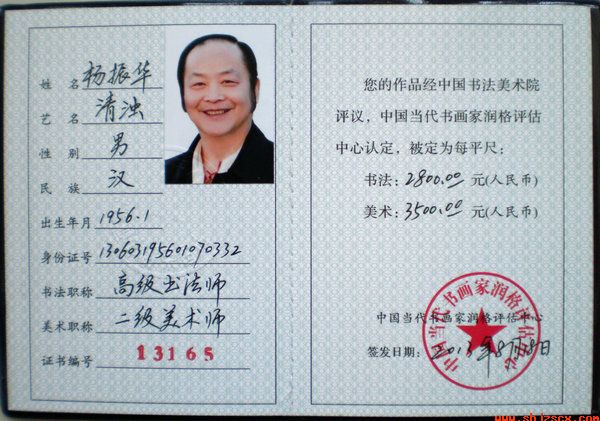 姓名 杨振华
艺名 清浊
性别 男
民族 汉
出生年月 1956.1
身份证号 130603195601070332
书法职称 高级书法师
美术职称 二级美术师
证书编号 13165
您的作品经中国书法美术院
评议，中国当代书画家润格评估
中心认定，被定为每平尺：
书法：2800.00 元(人民币)
美术：3500.00 元(人民币)
中国当代书画家润格评估中心
中国当代书画家润格评估中心
签发日期：2013年8月18日
www.shjzscx.com